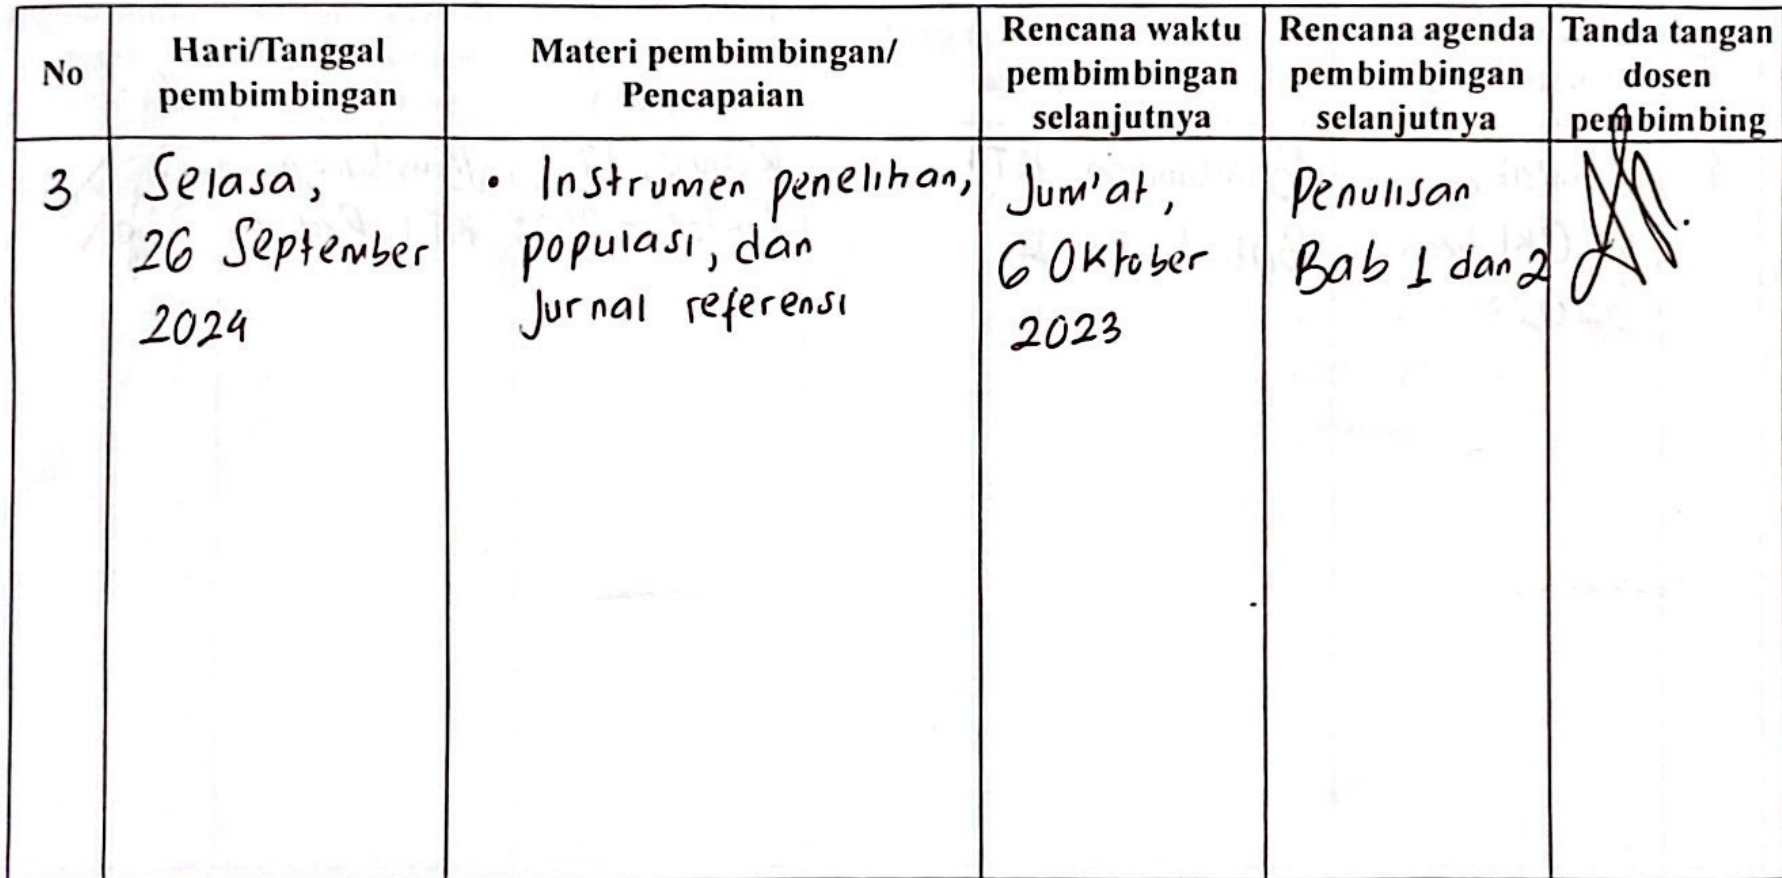 No
Hari/Tanggal
pembimbingan
Materi pembimbingan/
Pencapaian
Rencana waktu
pembimbingan
selanjutnya
Rencana agenda
pembimbingan
selanjutnya
Tanda tangan
dosen
pembimbing
3
Selasa,
26 September
2024
• Instrumen penelitian,
populasi, dan
Jurnal referensi
Jum'at,
6 Oktober
2023
Penulisan
Bab 1 dan 2